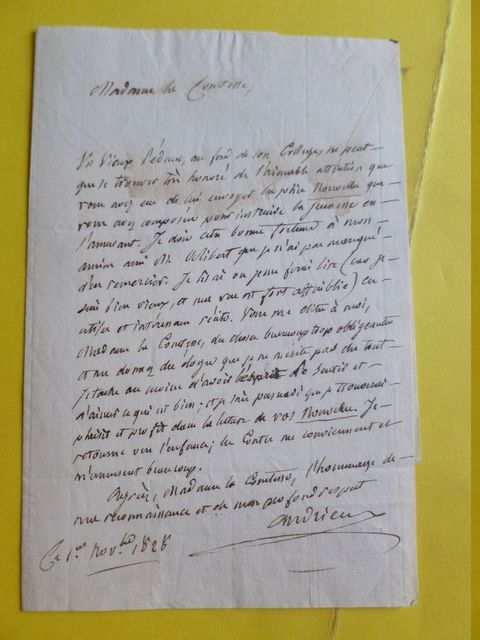 Madame la Comtesse,
Un vieux Pédant, au fond de son Collège, ne peut
que se trouver très honoré de l'aimable attention que
vous avez eue de lui envoyer la jolie Nouvelle que
vous avez composée pour instruire la jeunesse en
l'amusant. Je dois cette bonne fortune à mon
ancien ami Mr Alibert que je n'ai pas manqué
d'en remercier. Je lirai ou je me ferai lire (car je
suis bien vieux et ma vue est fort affaiblie) cet
utile et intéressant récit. Vous me dites à moi,
Madame la Comtesse, des choses beaucoup trop obligeantes
et me donnez des éloges que je ne mérite pas du tout
Je tache au moins d'avoir l'esprit de sentir et
d'aimer ce qui est bien; et je suis persuadé que je trouverai
plaisir et profit dans la lecture de vos Nouvelles. Je
retourne vers l'enfance; les Contes me conviennent et
m'amusent beaucoup.
Agréez, Madame la Comtesse, l'hommage de
ma reconnaissance et de mon profond respect
Andrieux
Ce 1er Novbre 1828